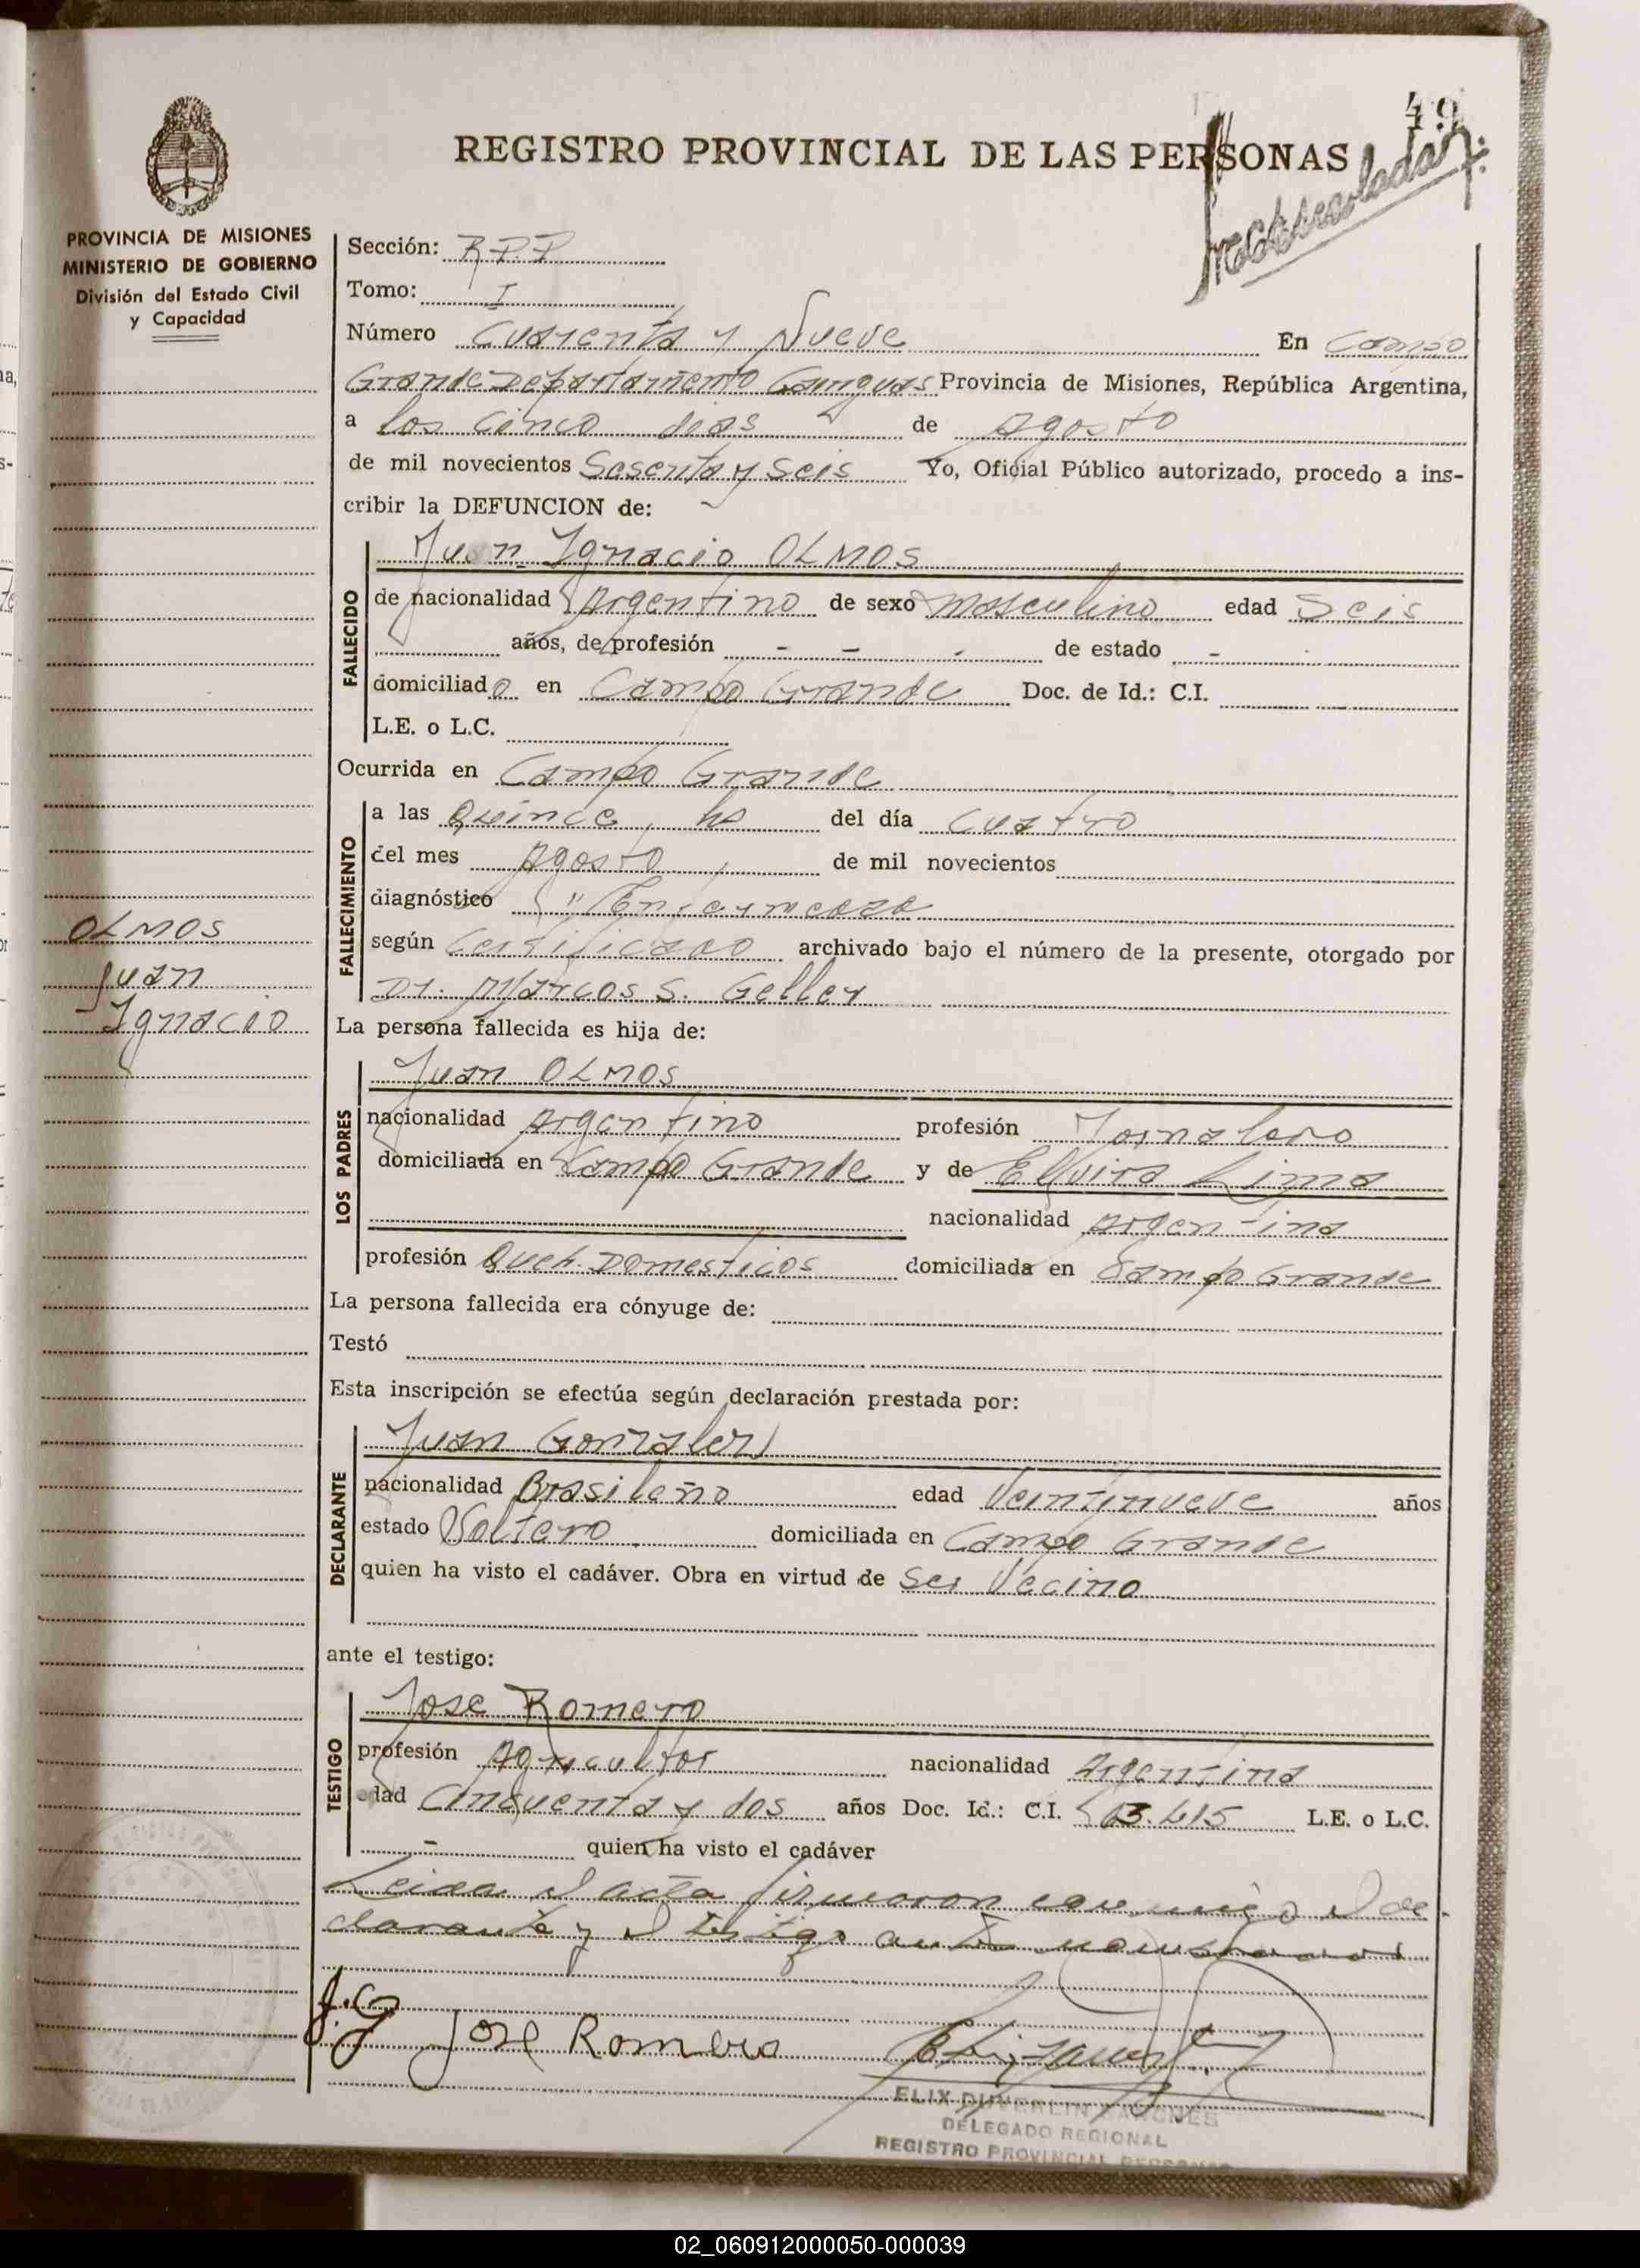 49
REGISTRO PROVINCIAL DE LAS PERSONAS
PROVINCIA DE MISIONES
MINISTERIO DE GOBIERNO
División del Estado Civil
y Capacidad
Sección: R.P.P
Tomo: I
Número Cuarenta y Nueve En Campo
Grande Departamento Cainguas Provincia de Misiones, República Argentina,
a los cinco dias de Agosto
de mil novecientos Sesenta y Seis Yo, Oficial Público autorizado, procedo a ins-
cribir la DEFUNCION de:
Juan Ignacio OLMOS
FALLECIDO
de nacionalidad Argentino de sexo masculino edad Seis
años, de profesión - - - de estado -
domiciliado en Campo Grande Doc. de Id.: C.I.
L.E. o L.C.
Ocurrida en Campo Grande
FALLECIMIENTO
a las Quince hs del día cuatro
del mes Agosto de mil novecientos
diagnóstico
según Certificado archivado bajo el número de la presente, otorgado por
Dr. Marcos S. Geller
OLMOS
Juan
Ignacio
La persona fallecida es hija de:
Juan OLMOS
LOS PADRES
nacionalidad Argentino profesión Jornalero
domiciliada en Campo Grande y de Elvira Lima
nacionalidad Argentina
profesión Queh. Domesticos domiciliada en Campo Grande
La persona fallecida era cónyuge de:
Testó
Esta inscripción se efectúa según declaración prestada por:
Juan Gonzalez
DECLARANTE
nacionalidad Brasileño edad Veintinueve años
estado Soltero domiciliada en Campo Grande
quien ha visto el cadáver. Obra en virtud de Ser Vecino
ante el testigo:
Jose Romero
TESTIGO
profesión Agricultor nacionalidad Argentina
edad Cincuenta y dos años Doc. Id.: C.I. L.E. o L.C.
- quien ha visto el cadáver
Leida el acta firmaron conmigo el de-
clarante y el testigo antes
J.G Jose Romero
ELIX DUVERLIN SANCHES
DELEGADO REGIONAL
REGISTRO PROVINCIAL
02_060912000050-000039